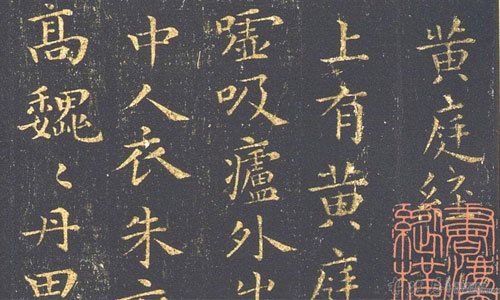 黄庭經
上有黄庭
嘘吸廬外出
中人衣朱衣
高巍〻丹田